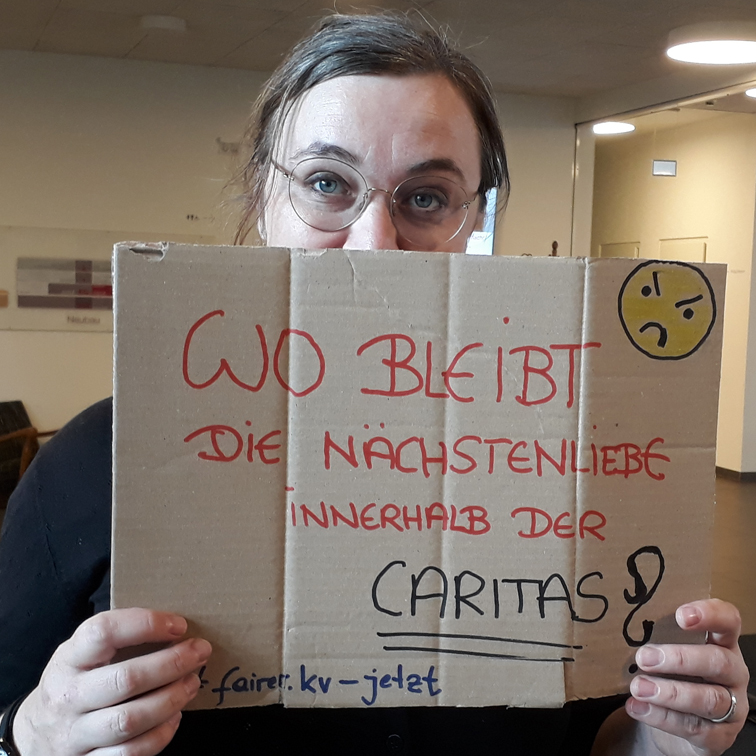 WO BLEIBT
DIE NÄCHSTENLIEBE
INNERHALB DER
CARITAS?
#fairer.kv-jetzt